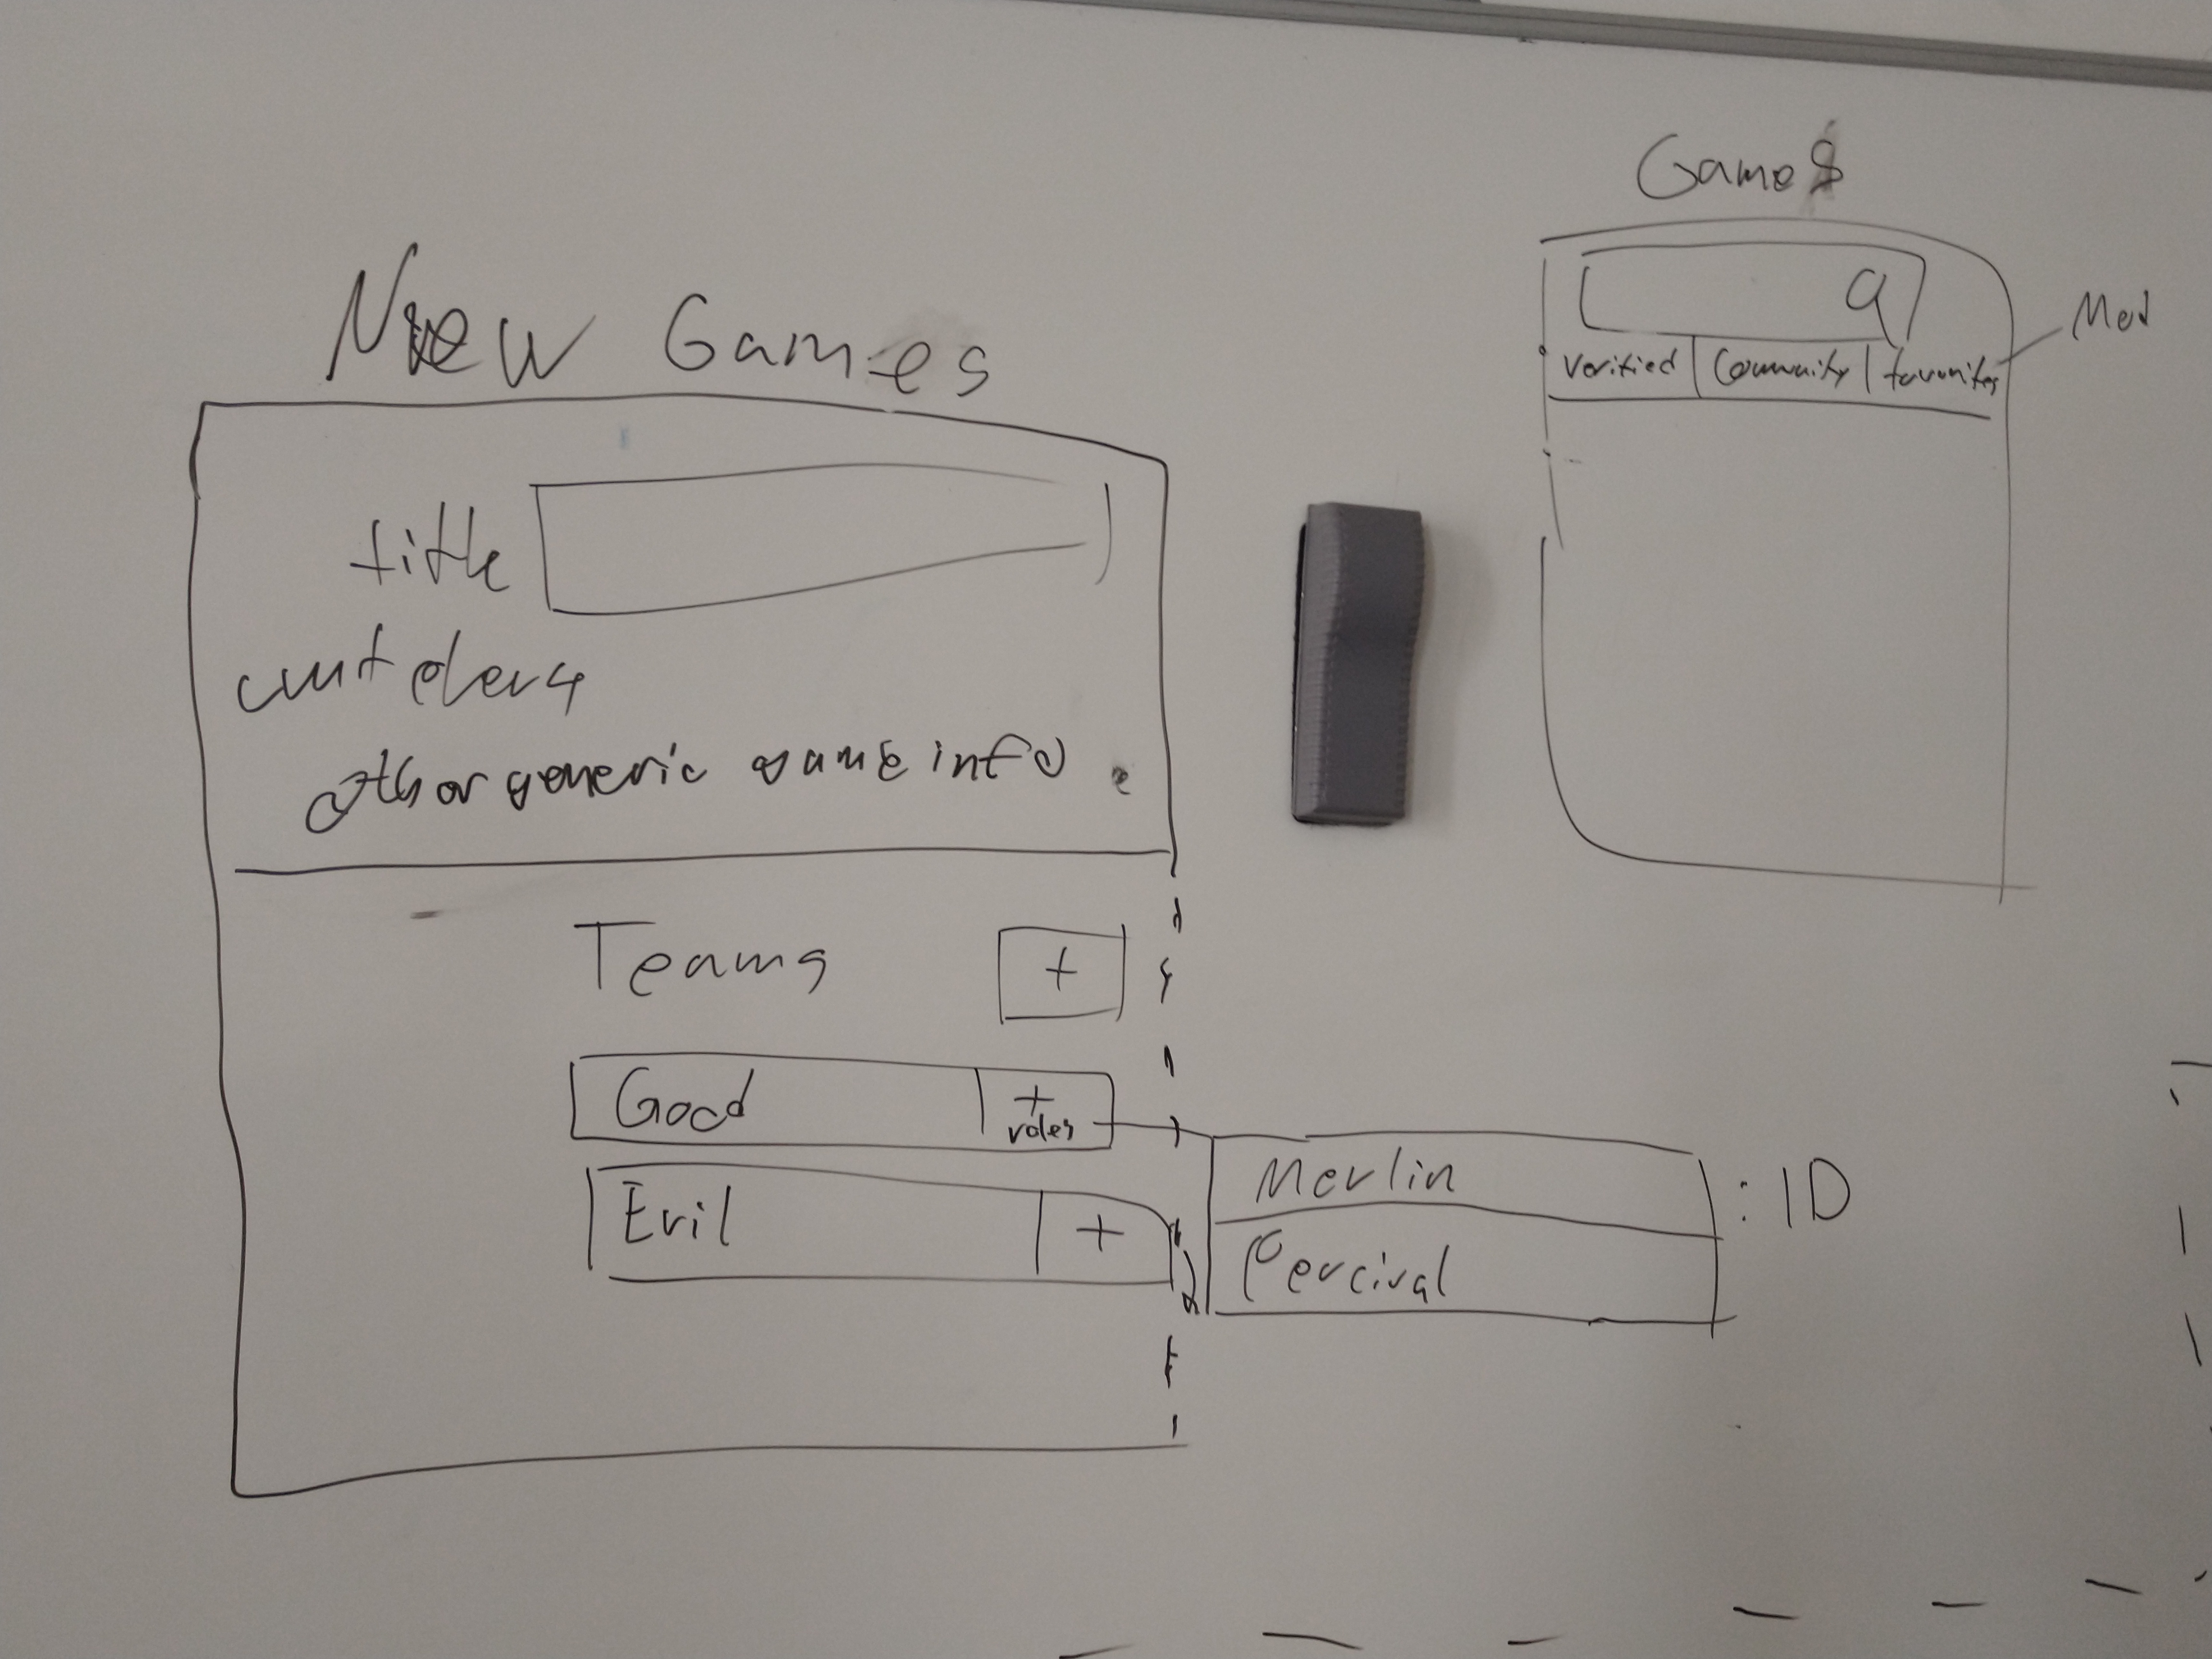 New Games
title
other generic game info
Teams +
Good + roles
Evil +
Merlin : ID
Percival
Games
Verified | Community | favorites
Mod